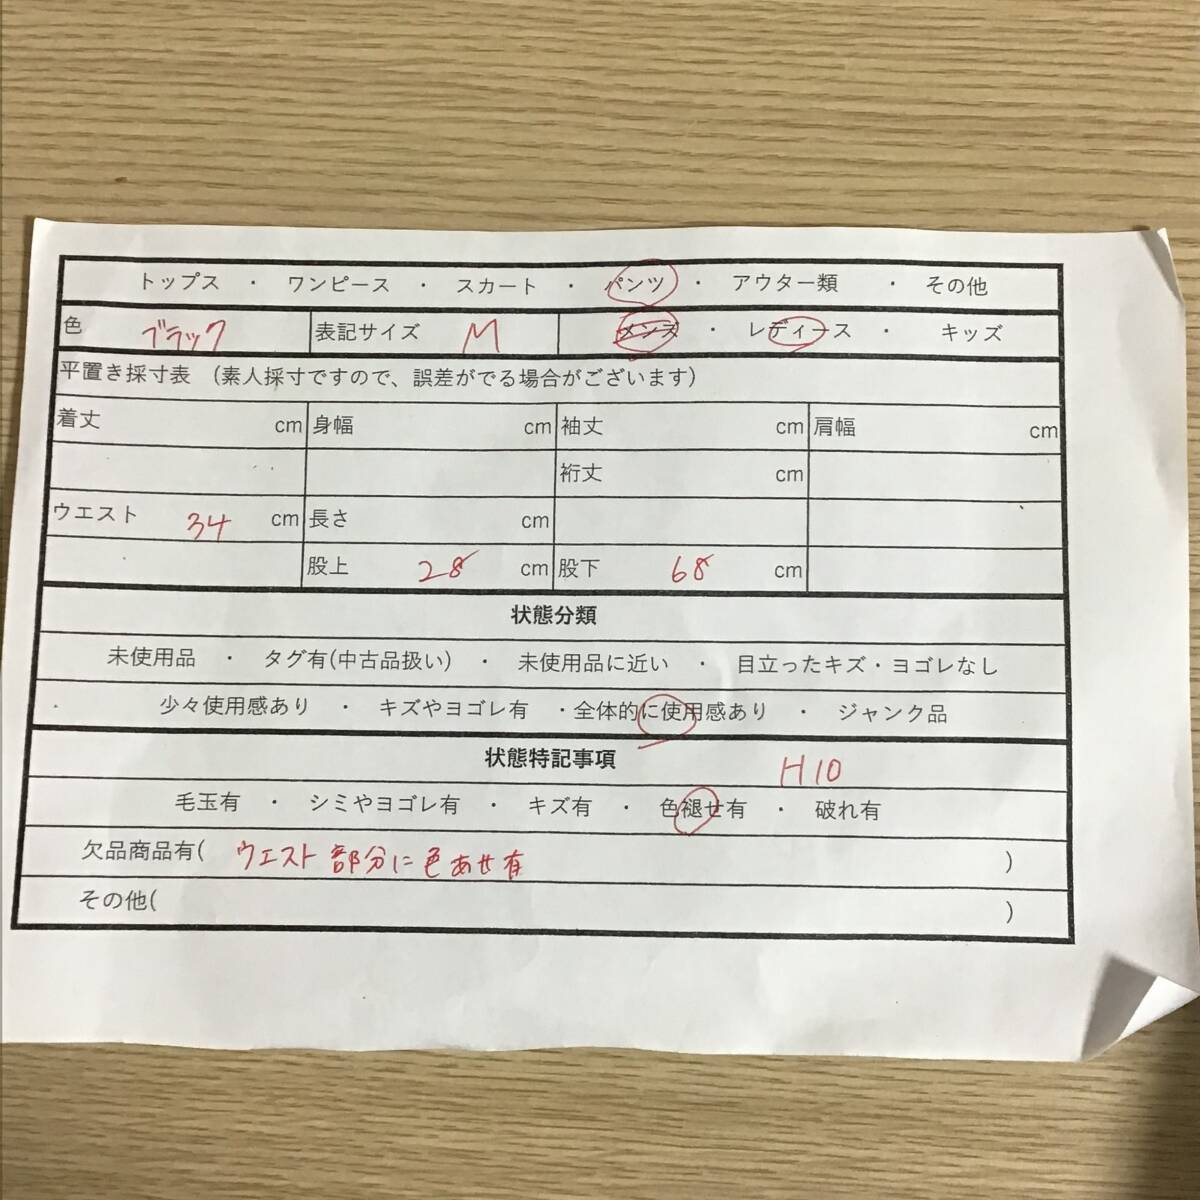 トップス ・ ワンピース ・ スカート ・ パンツ ・ アウター類 ・ その他
色 ブラック 表記サイズ M メンズ ・ レディース ・ キッズ
平置き採寸表 (素人採寸ですので、誤差がでる場合がございます)
着丈 cm 身幅 cm 袖丈 cm 肩幅 cm
裄丈 cm
ウエスト 34 cm 長さ cm
股上 28 cm 股下 68 cm
状態分類
未使用品 ・ タグ有(中古品扱い) ・ 未使用品に近い ・ 目立ったキズ・ヨゴレなし
少々使用感あり ・ キズやヨゴレ有 ・全体的に使用感あり ・ ジャンク品
状態特記事項 H10
毛玉有 ・ シミやヨゴレ有 ・ キズ有 ・ 色褪せ有 ・ 破れ有
欠品商品有( ウエスト部分に色あせ有 )
その他( )